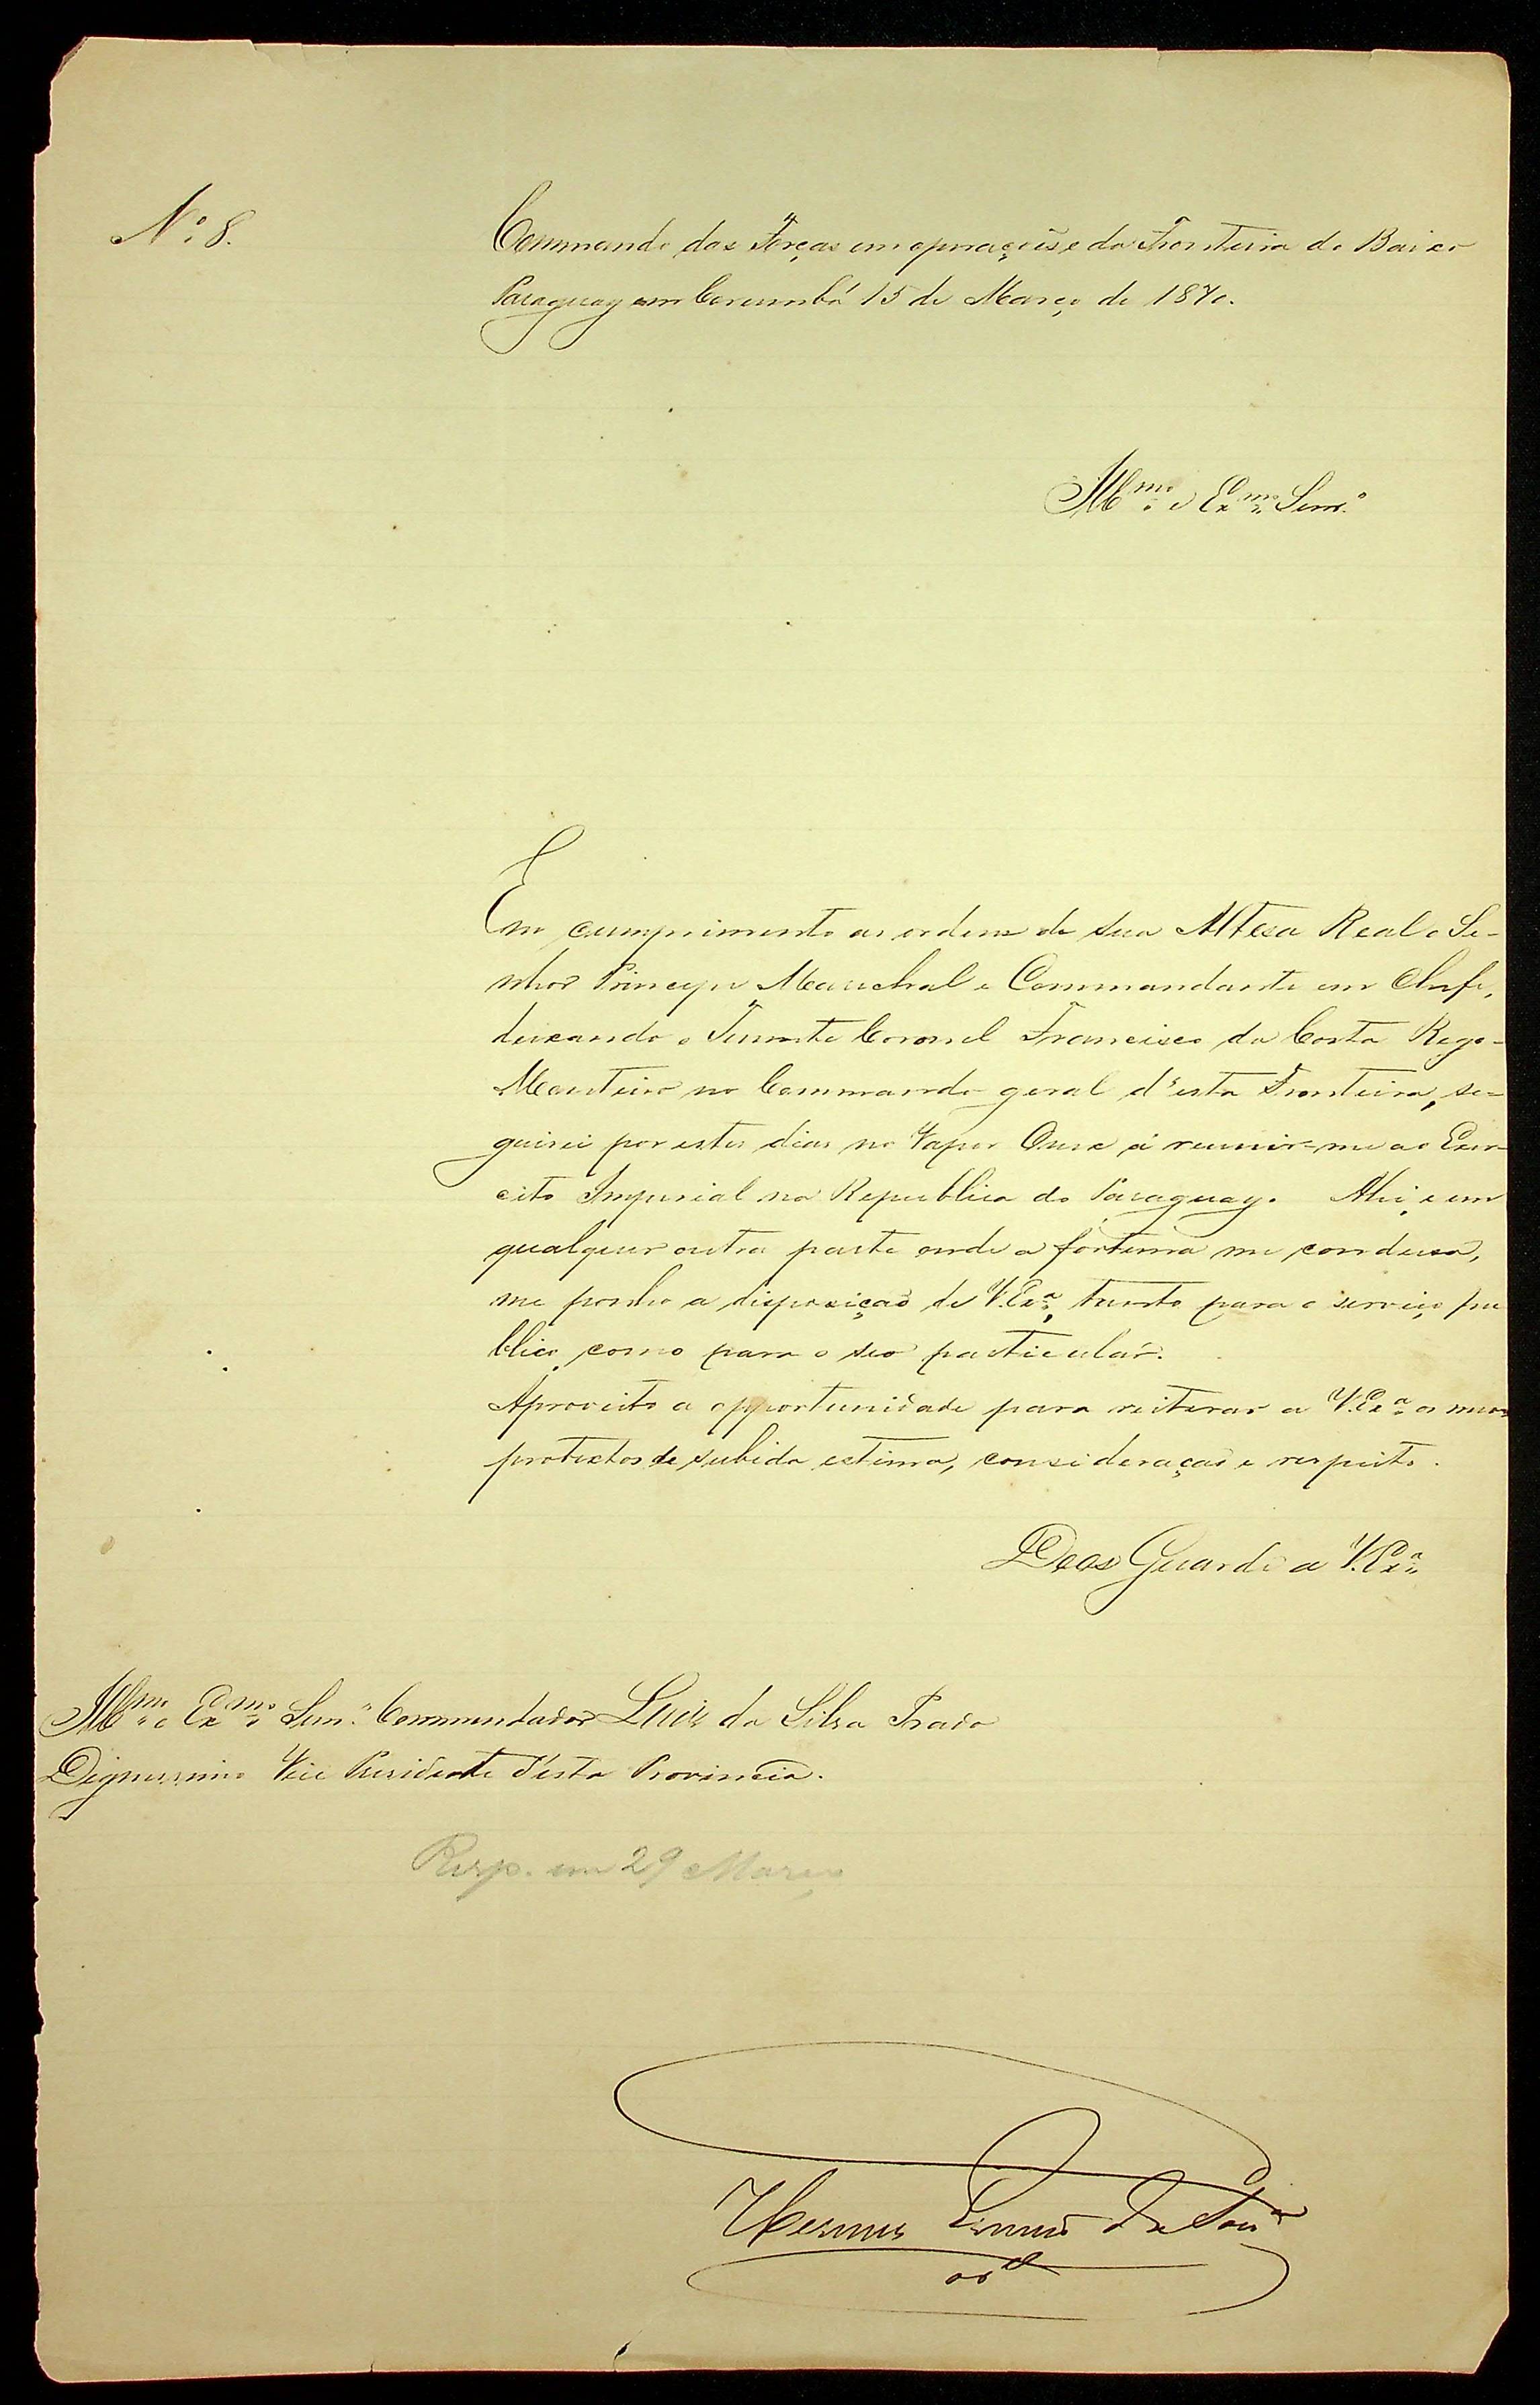 Nº 8.
Commando das Forças em operações e da Fronteira do Baixo
Paraguay em Corumbá 15 de Março de 1870.
Illmo e Exmo Senr.
Em cumprimento as ordens de Sua Altesa Real o Se-
nhor Principe Marechal e Commandante em Chefe,
deixando o Tenente Coronel Francisco da Costa Rego
Monteiro no Commando geral d'esta Fronteira, se-
guirei por estes dias no Vapor á reunir-me ao Exer-
cito Imperial na Republica do Paraguay. Ahi, e em
qualquer outra parte onde a fortuna me condusa,
me ponho a disposição de V.Exa, tanto para o serviço pu
blico, como para o seo particular.
Aproveito a opportunidade para reiterar a V.Exa os meos
protextos de subida estima, consideração e respeito.
Deos Guarde a V.Exa
Illmo e Exmo Senr. Commendador Luis da Silva Prado
Dignissimo Vice Presidente d'esta Provincia.
Resp. em 29 Março
Hermes Ernesto da Fonca